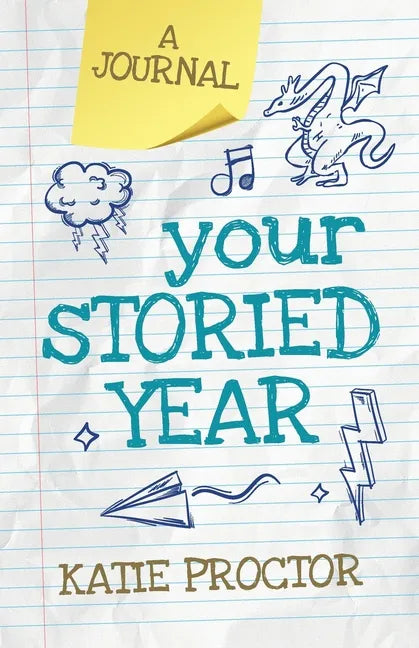 A
JOURNAL
your
STORIED
YEAR
KATIE PROCTOR